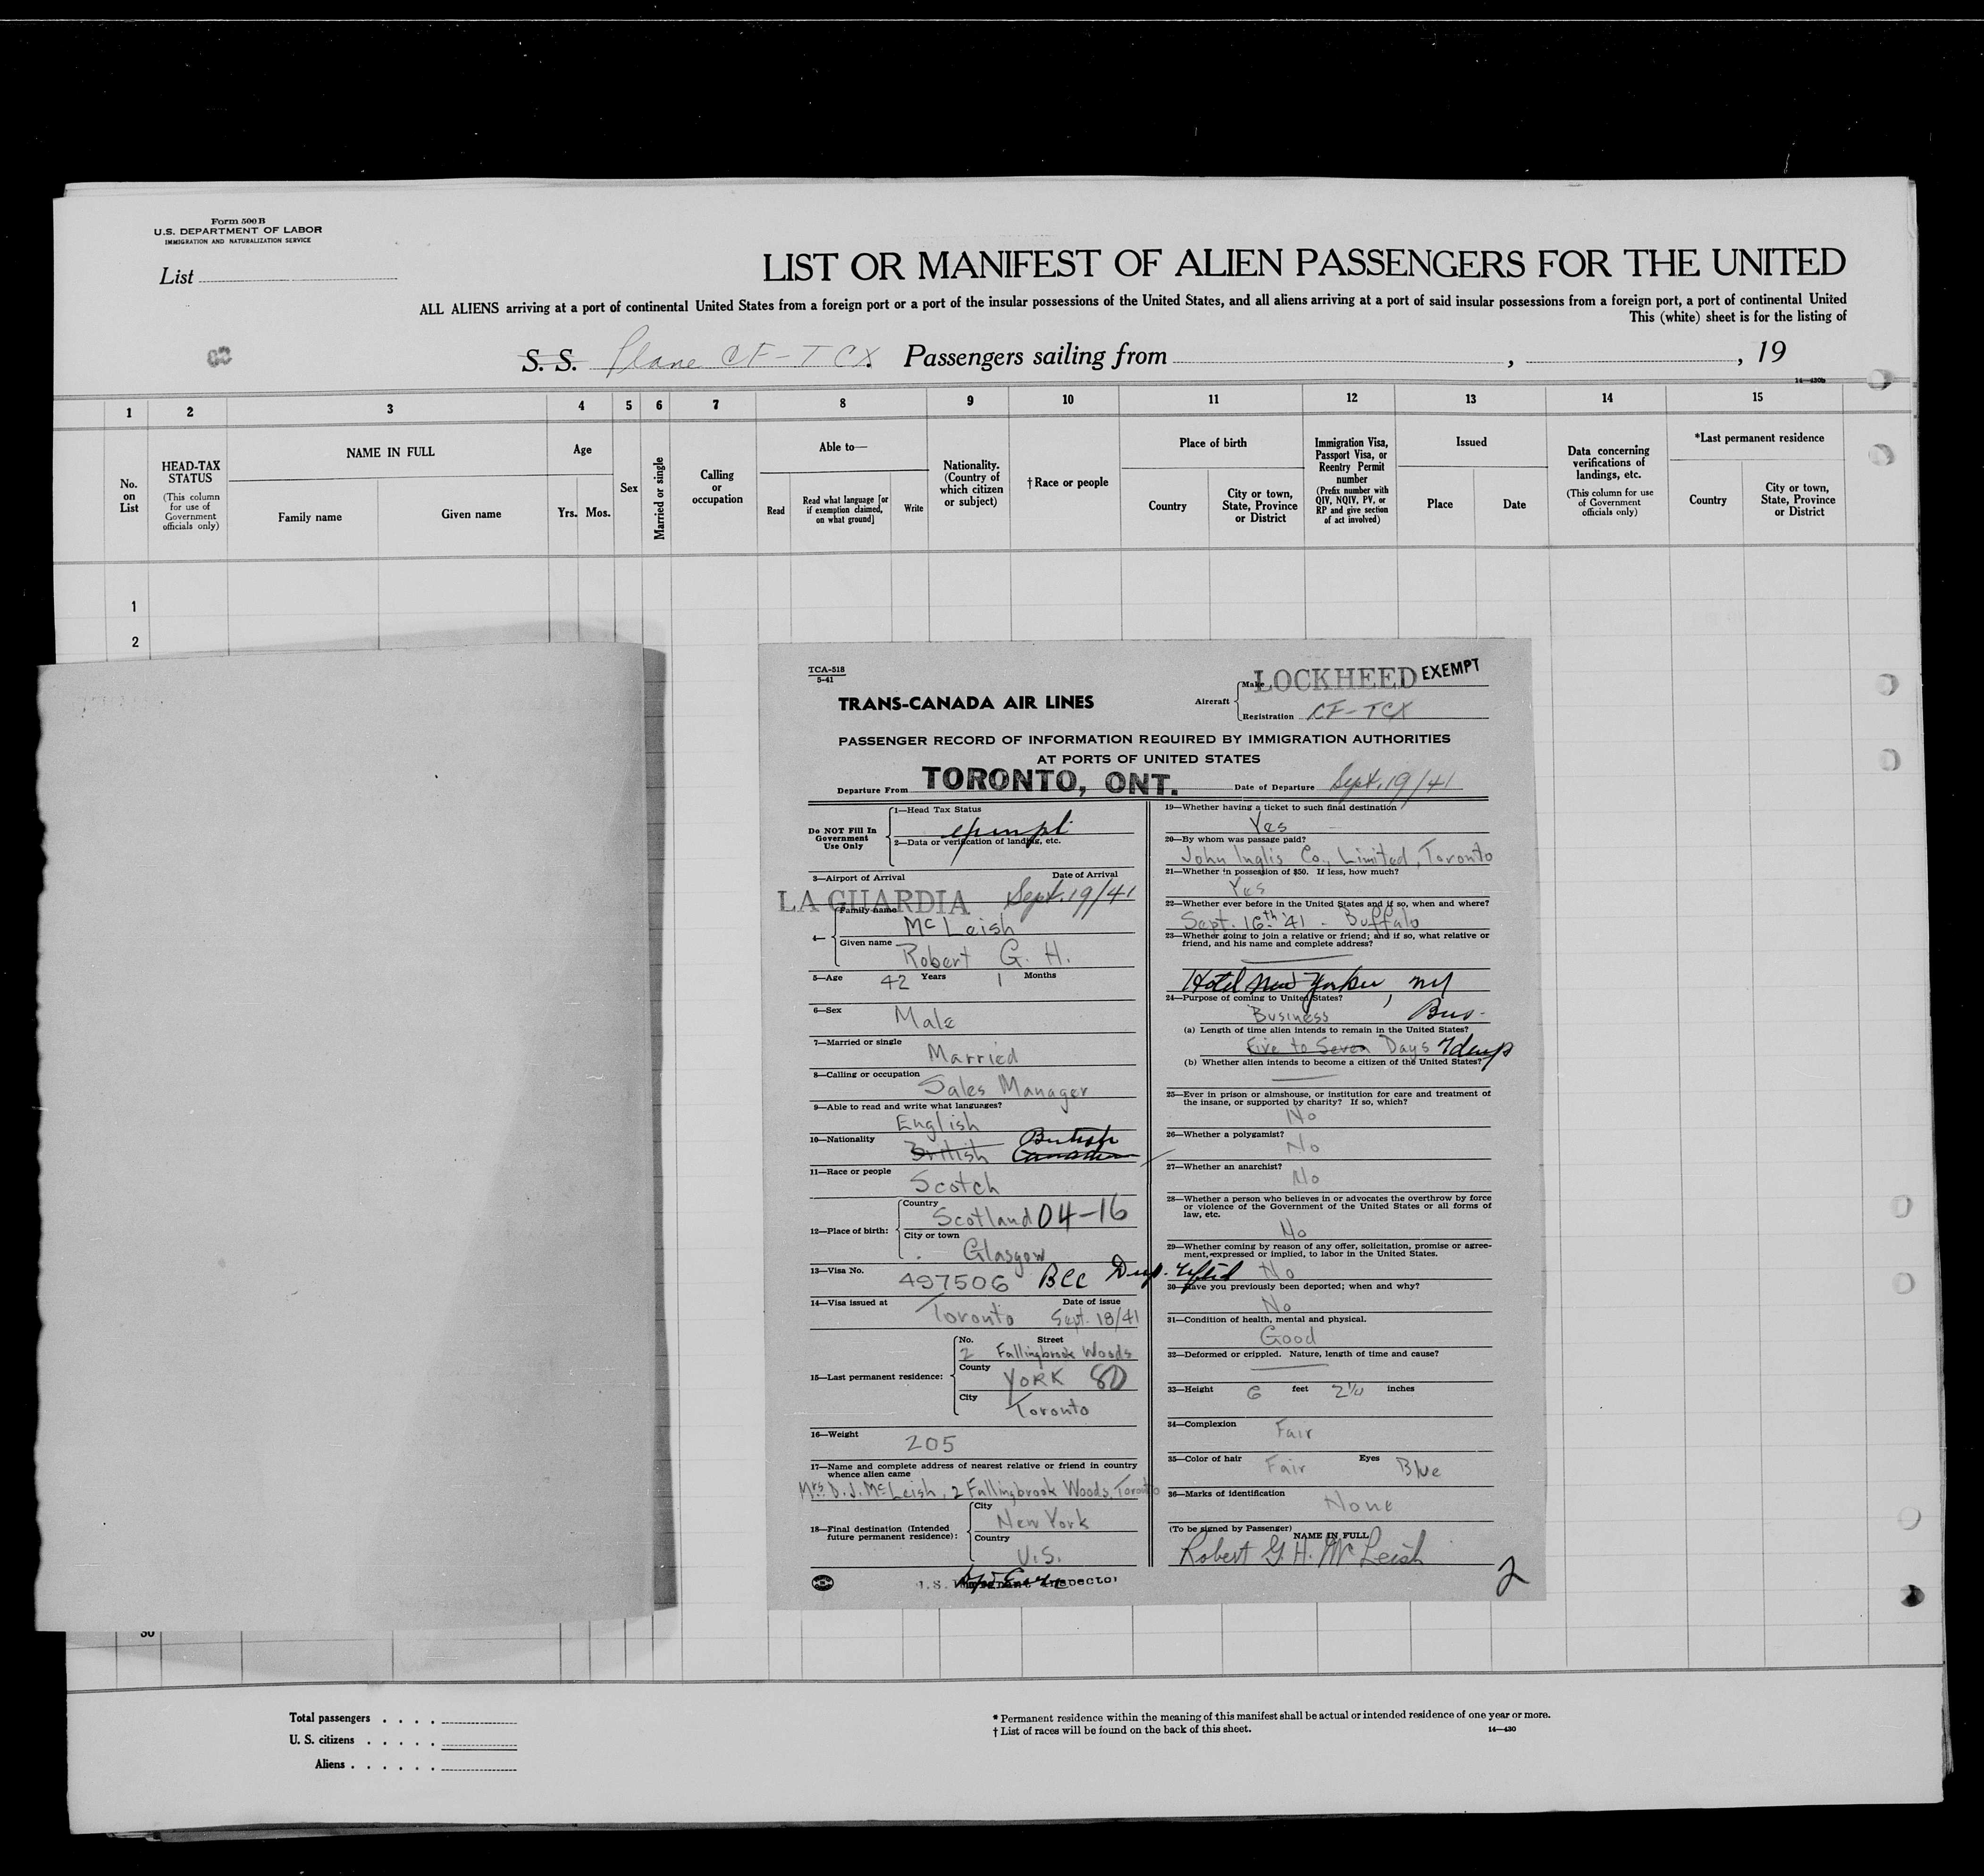 Form 500 B
U.S. DEPARTMENT OF LABOR
IMMIGRATION AND NATURALIZATION SERVICE
List
LIST OR MANIFEST OF ALIEN PASSENGERS FOR THE UNITED
ALL ALIENS arriving at a port of continental United States from a foreign port or a port of the insular possessions of the United States, and all aliens arriving at a port of said insular possessions from a foreign port, a port of continental United
This (white) sheet is for the listing of
S. S. Plane CF-TCX. Passengers sailing from , , 19
14—430b
1 2 3 4 5 6 7 8 9 10 11 12 13 14 15
No. on List
HEAD-TAX STATUS
(This column for use of Government officials only)
NAME IN FULL
Family name Given name
Age
Yrs. Mos.
Sex
Married or single
Calling or occupation
Able to—
Read
Read what language [or if exemption claimed, on what ground]
Write
Nationality. (Country of which citizen or subject)
†Race or people
Place of birth
Country
City or town, State, Province or District
Immigration Visa, Passport Visa, or Reentry Permit number
(Prefix number with QIV, NQIV, PV, or RP and give section of act involved)
Issued
Place Date
Data concerning verifications of landings, etc.
(This column for use of Government officials only)
*Last permanent residence
Country
City or town, State, Province or District
1
2
TCA-518
5-41
TRANS-CANADA AIR LINES
Aircraft
Make LOCKHEED EXEMPT
Registration CF-TCX
PASSENGER RECORD OF INFORMATION REQUIRED BY IMMIGRATION AUTHORITIES
AT PORTS OF UNITED STATES
Departure From TORONTO, ONT. Date of Departure Sept. 19/41
Do NOT Fill In Government Use Only
1—Head Tax Status
exempt
2—Data or verification of landing, etc.
3—Airport of Arrival Date of Arrival
LA GUARDIA Sept. 19/41
4—
Family name
McLeish
Given name
Robert G. H.
5—Age 42 Years 1 Months
6—Sex Male
7—Married or single Married
8—Calling or occupation
Sales Manager
9—Able to read and write what languages?
English
10—Nationality British
British Canadian
11—Race or people
Scotch
12—Place of birth:
Country
Scotland 04-16
City or town
Glasgow
13—Visa No. 497506 BCC Dup. lifted
14—Visa issued at Date of issue
Toronto Sept. 18/41
15—Last permanent residence:
No. Street
2 Fallingbrook Woods
County
YORK 80
City
Toronto
16—Weight
205
17—Name and complete address of nearest relative or friend in country whence alien came
Mrs. D. J. McLeish, 2 Fallingbrook Woods, Toronto
18—Final destination (Intended future permanent residence):
City
New York
Country
U.S.
U.S. Immigrant Inspector
19—Whether having a ticket to such final destination
Yes
20—By whom was passage paid?
John Inglis Co., Limited, Toronto
21—Whether in possession of $50. If less, how much?
Yes
22—Whether ever before in the United States and if so, when and where?
Sept. 16th '41 - Buffalo
23—Whether going to join a relative or friend; and if so, what relative or friend, and his name and complete address?
Hotel New Yorker, NY
24—Purpose of coming to United States?
Business Bus-
(a) Length of time alien intends to remain in the United States?
Five to Seven Days 7 days
(b) Whether alien intends to become a citizen of the United States?
25—Ever in prison or almshouse, or institution for care and treatment of the insane, or supported by charity? If so, which?
No
26—Whether a polygamist?
No
27—Whether an anarchist?
No
28—Whether a person who believes in or advocates the overthrow by force or violence of the Government of the United States or all forms of law, etc.
No
29—Whether coming by reason of any offer, solicitation, promise or agreement, expressed or implied, to labor in the United States.
No
30—Have you previously been deported; when and why?
No
31—Condition of health, mental and physical.
Good
32—Deformed or crippled. Nature, length of time and cause?
33—Height 6 feet 2¼ inches
34—Complexion
Fair
35—Color of hair Fair Eyes Blue
36—Marks of identification
None
(To be signed by Passenger)
NAME IN FULL
Robert G. H. McLeish
2
30
Total passengers . . . .
U. S. citizens . . . . .
Aliens . . . . . .
* Permanent residence within the meaning of this manifest shall be actual or intended residence of one year or more.
† List of races will be found on the back of this sheet.
14—430